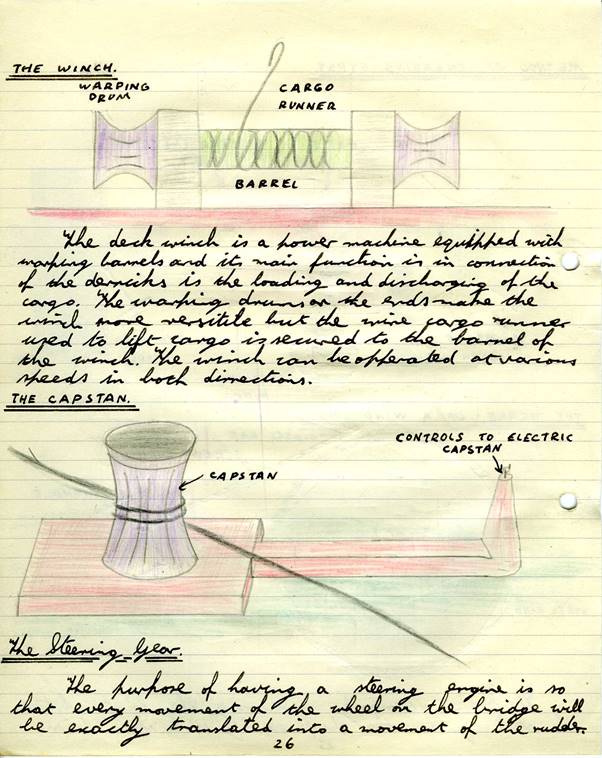 THE WINCH.
WARPING DRUM
CARGO RUNNER
BARREL
The deck winch is a power machine equipped with
warping barrels and its main function is in connection
of the derricks is the loading and discharging of the
cargo. The warping drums on the ends make the
winch more versitile but the wire cargo runner
used to lift cargo is secured to the barrel of
the winch. The winch can be opperated at various
speeds in both dirrections.
THE CAPSTAN.
CONTROLS TO ELECTRIC
CAPSTAN
CAPSTAN
The Steering Gear.
The purpose of having a steering engine is so
that every movement of the wheel on the bridge will
be exactly translated into a movement of the rudder.
26